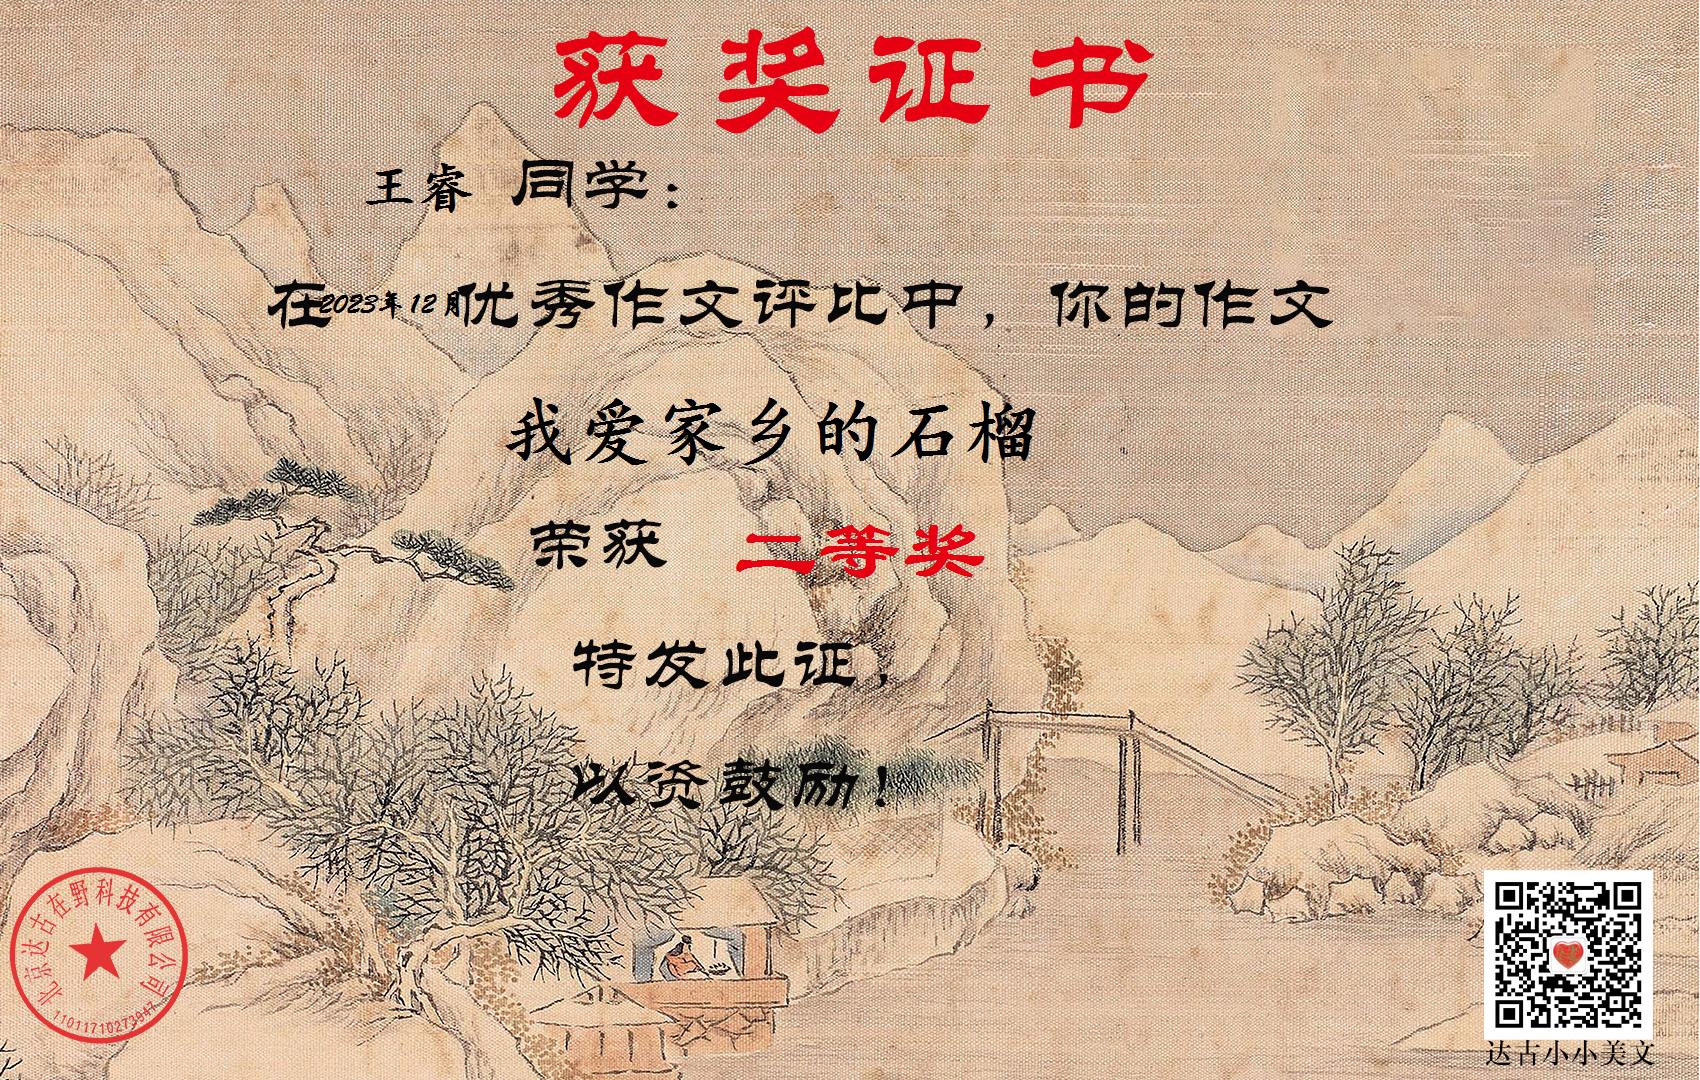 获奖证书
王睿 同学：
在2023年12月优秀作文评比中，你的作文
我爱家乡的石榴
荣获 二等奖
特发此证，
以资鼓励！
北京达古在野科技有限公司
11011710273947
达古小小美文